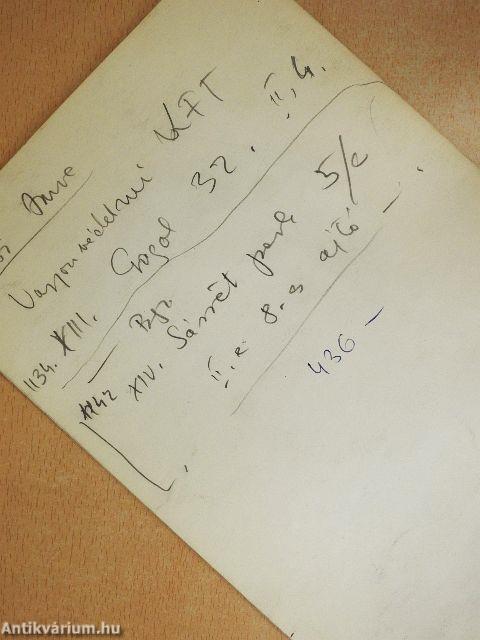 Anna
Vagyonvédelmi KFT
1134. XIII. Gogol 32. II, 4.
Bp.
1142 XIV. Sárrét park 5/c
II. e 8.s ajtó
436 –
Antikvárium.hu